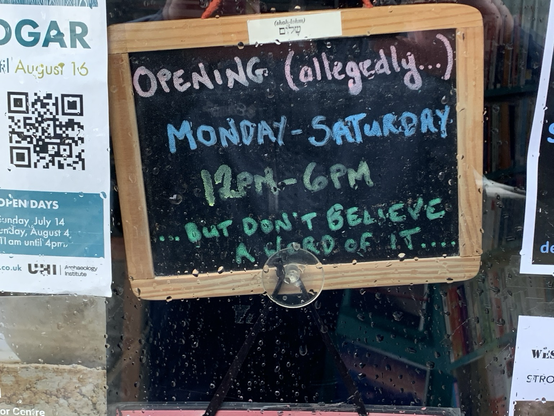 OGAR
August 16
OPEN DAYS
Sunday, July 14
11am until 4pm
.co.uk UHI Archaeology
Institute
or Centre
שלום
OPENING (allegedly...)
MONDAY-SATURDAY
12PM-6PM
...BUT DON'T BELIEVE
A WORD OF IT....
WES
STRO